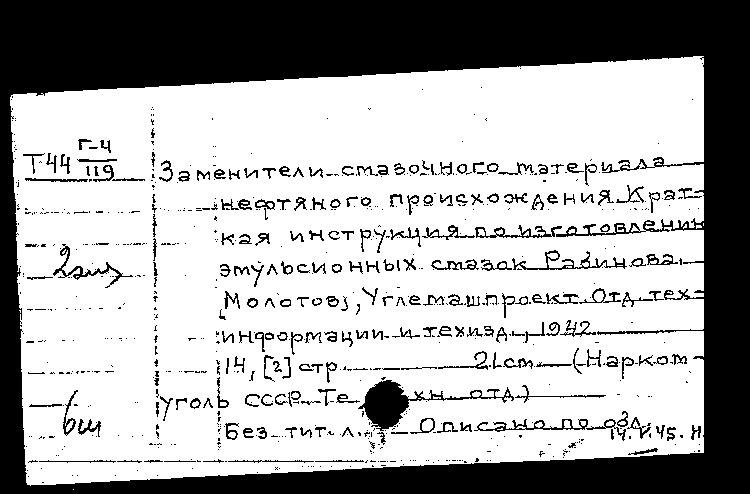 Т44 Г-4/119
Заменители смазочного материала
нефтяного происхождения. Крат-
кая инструкция по изготовлению
эмульсионных смазок Рабинова.
2 экз
[Молотов], Углемашпроект. Отд. тех-
информации и техизд., 1942
14, [2] стр. 21 cm (Нарком-
уголь СССР. Техн. отд.)
6ш
Без тит. л. Описано по обл.
14.V.45. Н